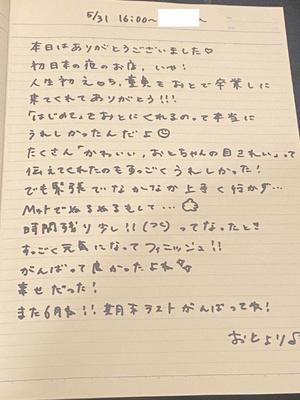 5/31 16:00〜 〜
本日はありがとうございました♡
初日本の夜のお店、いや!
人生初えっち、童貞をおとで卒業しに
来てくれてありがとう!!!
「はじめて」をおとにくれるのって本当に
うれしかったんだよ☺
たくさん「かわいい、おとちゃんの目きれい」って
伝えてくれたのもすっごくうれしかった!
でも緊張でなかなか上手く行かず…
Matでぬるぬるもして…
時間残り少し!! ってなったとき
すっごく元気になってフィニッシュ!!
がんばって良かったよね
幸せだった!
また6月ね!! 期末テストがんばってね!
おとより♪